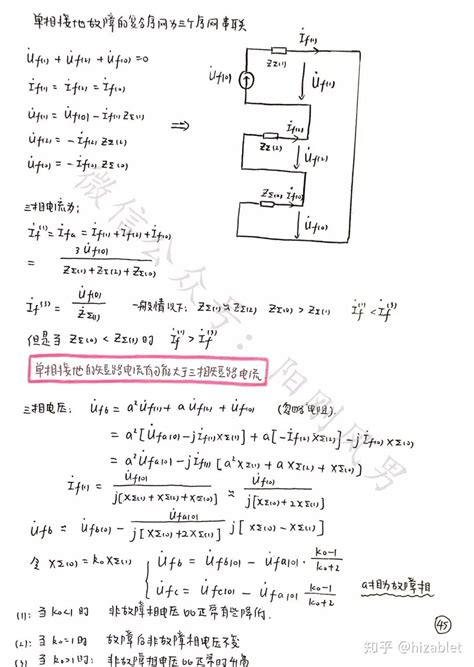 单相接地故障的复合序网为三个序网串联
U̇f(1) + U̇f(2) + U̇f(0) = 0
İf(1) = İf(2) = İf(0)
U̇f(1) = U̇f|0| - İf(1) ZΣ(1)
U̇f(2) = -İf(2) ZΣ(2)
U̇f(0) = -İf(0) ZΣ(0)
⇒
U̇f|0|
ZΣ(1)
İf(1)
U̇f(1)
İf(2)
ZΣ(2)
U̇f(2)
ZΣ(0) İf(0)
U̇f(0)
三相电流为:
İf⁽¹⁾ = İfa = İf(1) + İf(2) + İf(0)
= 3U̇f|0| / (ZΣ(1) + ZΣ(2) + ZΣ(0))
İf⁽³⁾ = U̇f|0| / ZΣ(1) 一般情况下: ZΣ(1) ≈ ZΣ(2) ZΣ(0) > ZΣ(1) İf⁽¹⁾ < İf⁽³⁾
但是当 ZΣ(0) < ZΣ(1) 时 İf⁽¹⁾ > İf⁽³⁾
单相接地的短路电流有可能大于三相短路电流
三相电压: U̇fb = a²U̇f(1) + aU̇f(2) + U̇f(0) (忽略电阻)
= a²[U̇fa|0| - jİf(1)XΣ(1)] + a[-İf(2)XΣ(2)] - jİf(0)XΣ(0)
= a²U̇fa|0| - jİf(1)[a²XΣ(1) + aXΣ(2) + XΣ(0)]
İf(1) = U̇f|0| / j[XΣ(1) + XΣ(2) + XΣ(0)] ≈ U̇f|0| / j[XΣ(0) + 2XΣ(1)]
U̇fb = U̇fb|0| - U̇fa|0| / j[XΣ(0) + 2XΣ(1)] j[XΣ(0) - XΣ(1)]
令 XΣ(0) = k₀XΣ(1) { U̇fb = U̇fb|0| - U̇fa|0| · (k₀-1)/(k₀+2)
U̇fc = U̇fc|0| - U̇fa|0| (k₀-1)/(k₀+2) a相为故障相
(1): 当 k₀<1 时 非故障相电压比正常有些降低.
(2): 当 k₀=1 时 故障后非故障相电压不变
(3): 当 k₀>1 时: 非故障相电压比正常时升高
45
微信公众号: 阳刚风男
知乎 @hizablet